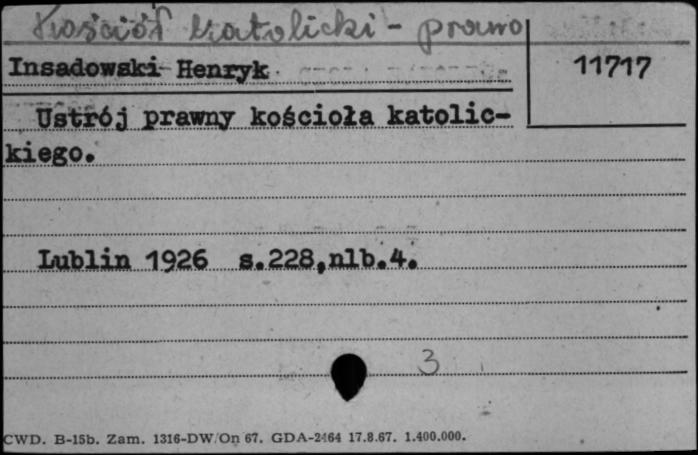 Kościół katolicki - prawo
Insadowski Henryk
11717
Ustrój prawny kościoła katolic-
kiego.
Lublin 1926 s.228,nlb.4.
3
CWD. B-15b. Zam. 1316-DW/On 67. GDA-2464 17.8.67. 1.400.000.